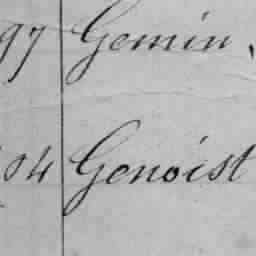 97 Gemin
04 Genoist